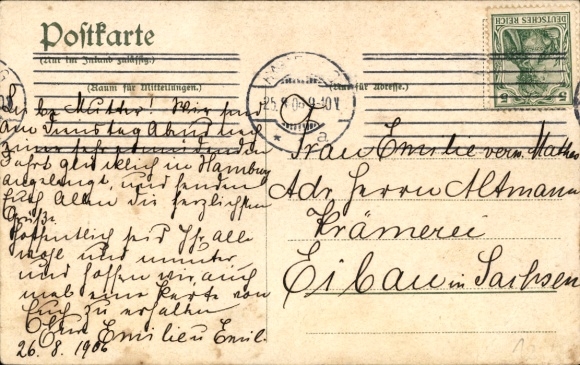 Postkarte
(Nur im Inland zulässig.)
(Raum für Mitteilungen.)
(Nur für Adresse.)
DEUTSCHES REICH
5 5
25.8.06 9-10V
a
Liebe Mutter! Wir sind
am Dienstag Abend nach
Fahrt glücklich in Hamburg
angelangt und senden
Euch Allen die herzlichsten
Grüße.
Hoffentlich seid Ihr alle
wohl und munter
und hoffen wir, auch
mal eine Karte von
Euch zu erhalten
Eure Emilie u Emil.
26.8.1906
Frau Emilie verw. Mathes
Adr. Herrn Altmann
Krämerei
Eibau in Sachsen